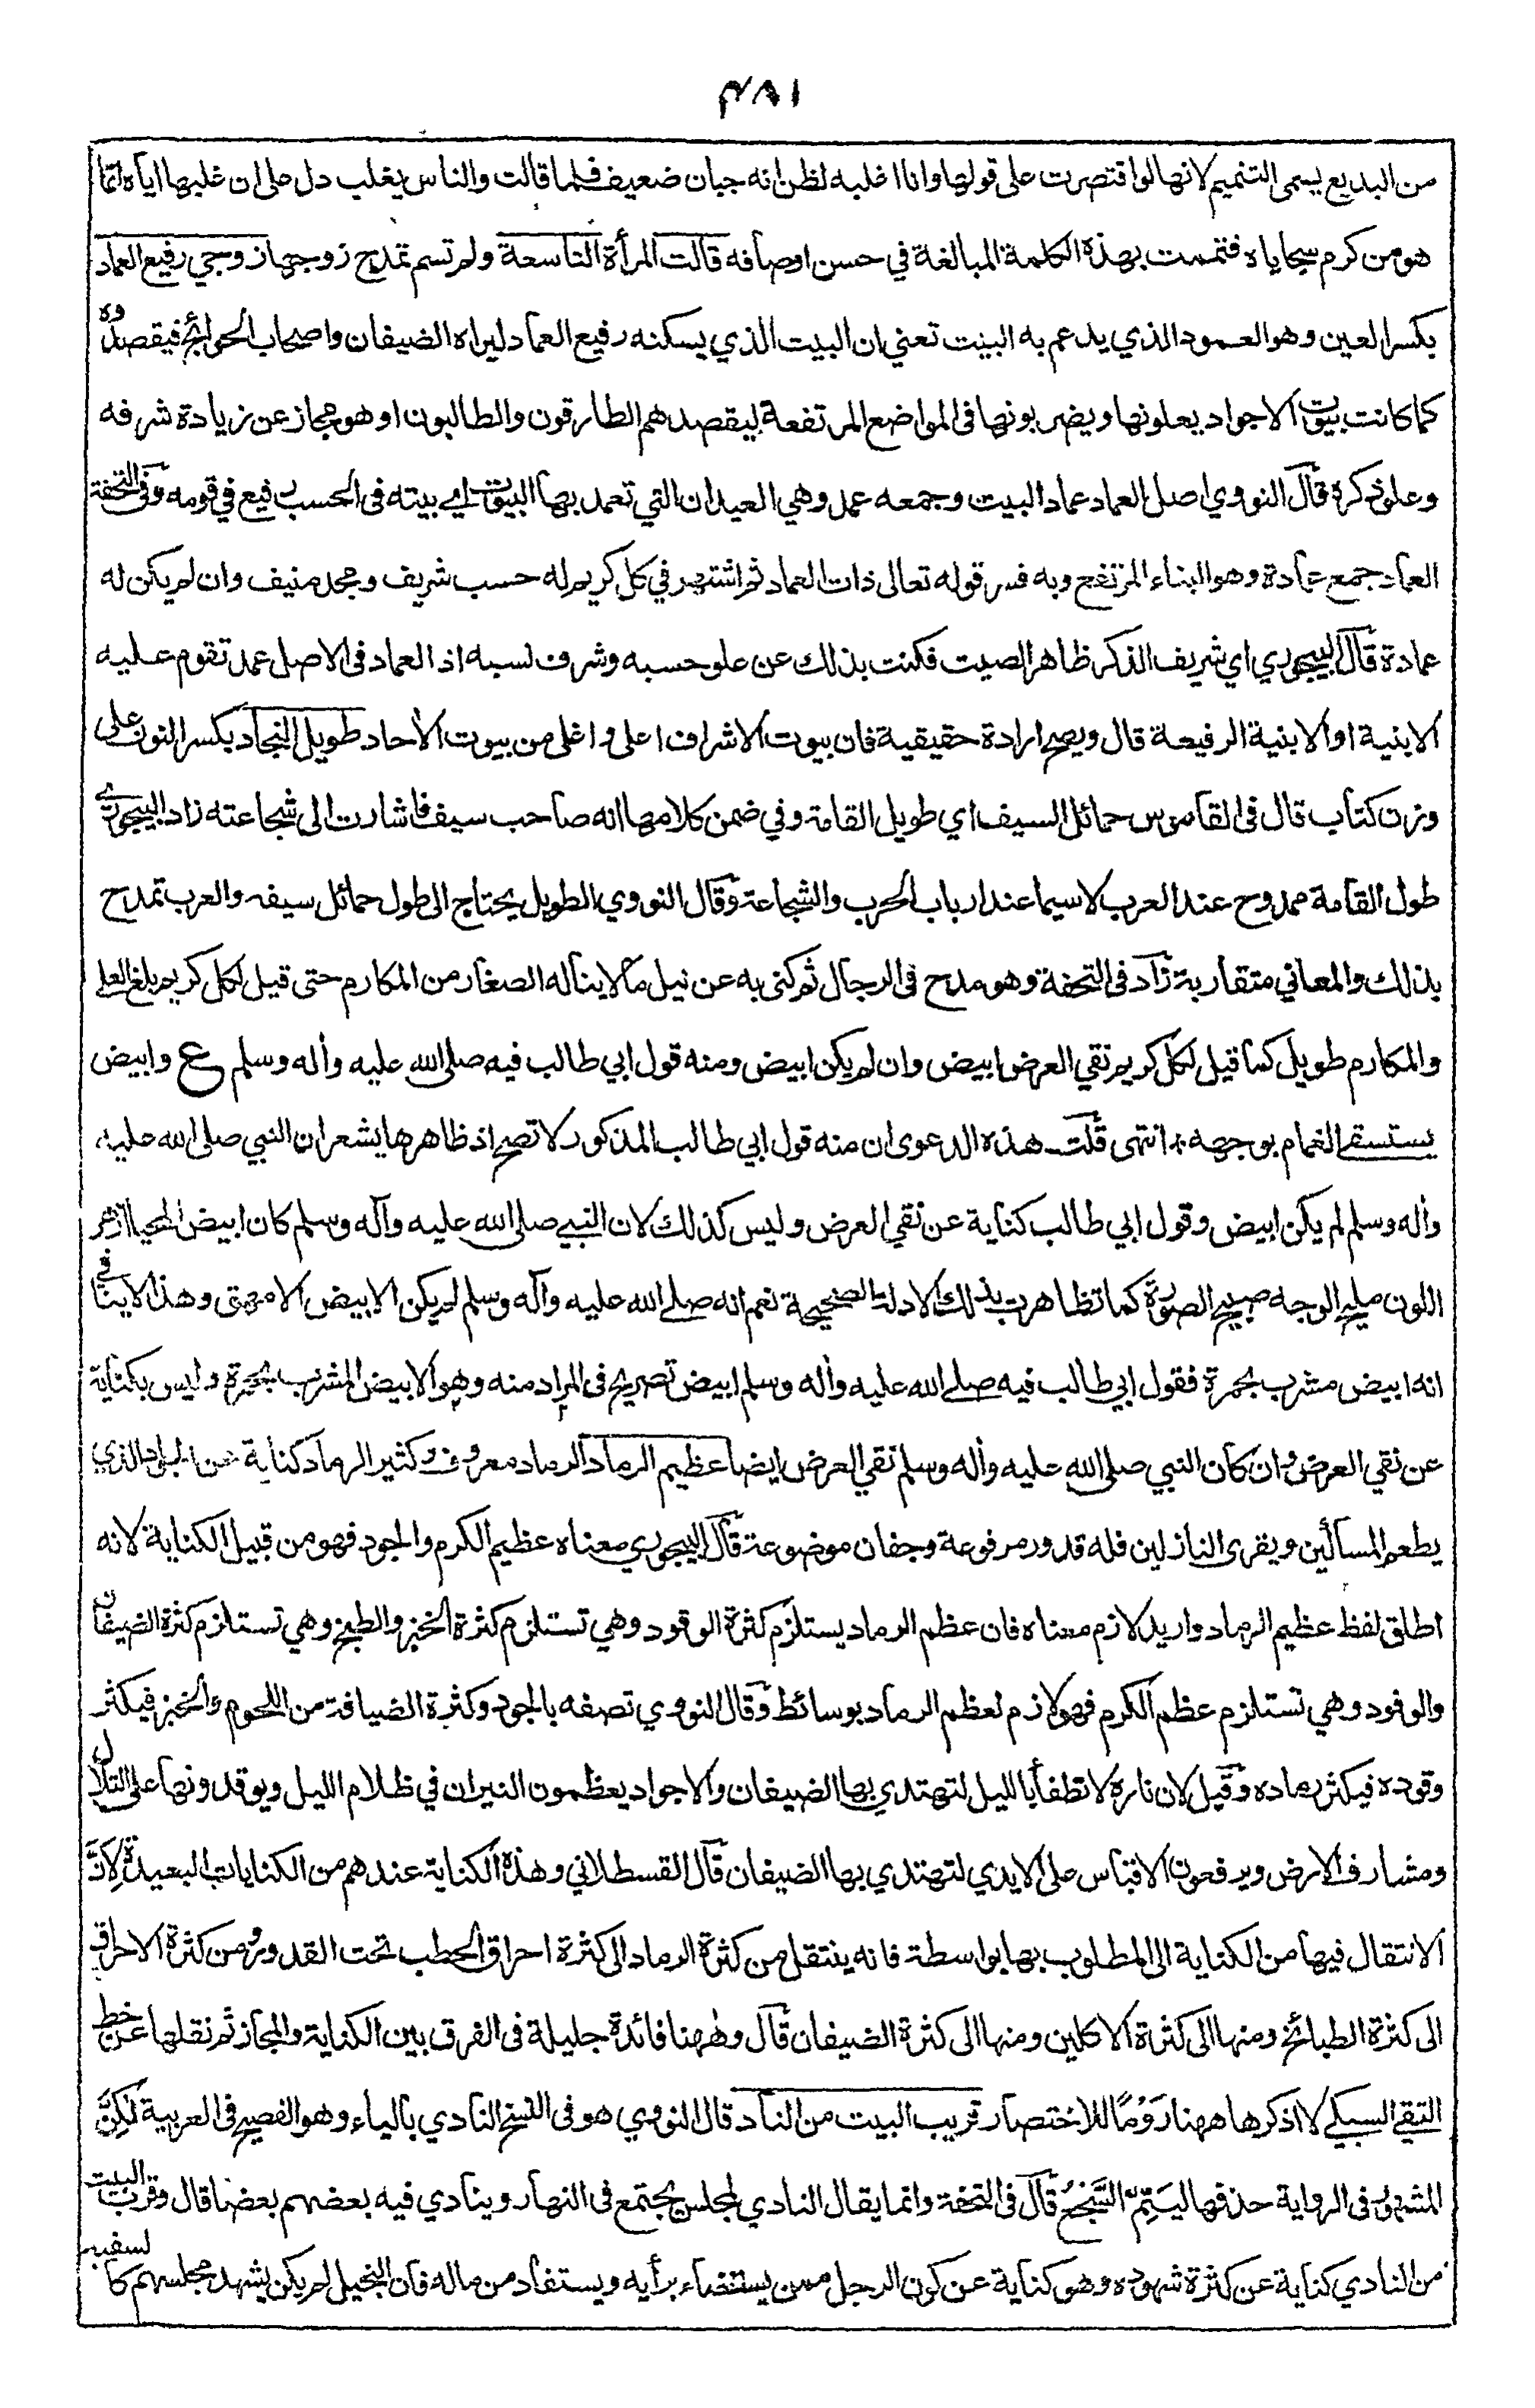 ٤٨١
من البديع يسمى التتميم لانها لو اقتصرت على قولها وانا اغلبه لظن انه جبان ضعيف فلما قالت والناس يغلب دل على ان غلبها اياه انما
هو من كرم سجاياه فتممت بهذه الكلمة المبالغة في حسن اوصافه قالت المرأة التاسعة ولم تسم تمدح زوجها زوجي رفيع العماد
بكسر العين وهو العمود الذي يدعم به البيت تعني ان البيت الذي يسكنه رفيع العماد ليراه الضيفان واصحاب الحوائج فيقصدوه
كما كانت بيوت الاجواد يعلونها ويضربونها في المواضع المرتفعة ليقصدهم الطارقون والطالبون او هو مجاز عن زيادة شرفه
وعلو ذكره قال النووي اصل العماد عماد البيت وجمعه عمد وهي العيدان التي تعمد بها البيوت اي بيته في الحسب رفيع في قومه وفي التحفة
العماد جمع عمادة وهو البناء المرتفع وبه فسر قوله تعالى ذات العماد ثم اشتهر في كل كريم له حسب شريف ومجد منيف وان لم يكن له
عمادة قال البيجوري اي شريف الذكر ظاهر الصيت فكنت بذلك عن علو حسبه وشرف نسبه اذ العماد في الاصل عمد تقوم عليه
الابنية او الابنية الرفيعة قال ويصح ارادة حقيقية فان بيوت الاشراف اعلى واغلى من بيوت الأحاد طويل النجاد بكسر النون على
وزن كتاب قال في القاموس حمائل السيف اي طويل القامة وفي ضمن كلامها انه صاحب سيف فاشارت الى شجاعته زاد البيجوري
طول القامة ممدوح عند العرب لاسيما عند ارباب الحرب والشجاعة وقال النووي الطويل يحتاج الى طول حمائل سيفه والعرب تمدح
بذلك والمعاني متقاربة زاد في التحفة وهو مدح في الرجال ثم كنى به عن نيل ما لا يناله الصغار من المكارم حتى قيل لكل كريم بلغ العلى
والمكارم طويل كما قيل لكل كريم نقي العرض ابيض وان لم يكن ابيض ومنه قول ابي طالب فيه صلى الله عليه وأله وسلم ع وابيض
يستسقى الغمام بوجهه * انتهى قلت هذه الدعوى ان منه قول ابي طالب المذكور لا تصح اذ ظاهرها يشعر ان النبي صلى الله عليه
وأله وسلم لم يكن ابيض وقول ابي طالب كناية عن نقي العرض وليس كذلك لان النبي صلى الله عليه وآله وسلم كان ابيض المحيا ازهر
اللون مليح الوجه صبيح الصورة كما تظاهرت بذلك الادلة الصحيحة نعم انه صلى الله عليه وآله وسلم لم يكن الابيض الامهق وهذا لا ينافي
انه ابيض مشرب بحمرة فقول ابي طالب فيه صلى الله عليه وأله وسلم ابيض تصريح في المراد منه وهو الابيض المشرب بحمرة وليس بكناية
عن نقي العرض وان كان النبي صلى الله عليه وأله وسلم نقي العرض ايضا عظيم الرماد الرماد معروف وكثير الرماد كناية عن الجواد الذي
يطعم المسألين ويقرى النازلين فله قدور مرفوعة وجفان موضوعة قال البيجوري معناه عظيم الكرم والجود فهو من قبيل الكناية لانه
اطلق لفظ عظيم الرماد واريد لازم معناه فان عظم الرماد يستلزم كثرة الوقود وهي تستلزم كثرة الخبز والطبخ وهي تستلزم كثرة الضيفان
والوفود وهي تستلزم عظم الكرم فهو لازم لعظم الرماد بوسائط وقال النووي تصفه بالجود وكثرة الضيافة من اللحوم والخبز فيكثر
وقوده فيكثر رماده وقيل لان ناره لا تطفأ بالليل لتهتدي بها الضيفان والاجواد يعظمون النيران في ظلام الليل ويوقدونها على التلال
ومشارف الارض ويرفعون الاقباس على الايدي لتهتدي بها الضيفان قال القسطلاني وهذه الكناية عندهم من الكنايات البعيدة لِأَنَّ
الانتقال فيها من الكناية الى المطلوب بها بواسطة فانه ينتقل من كثرة الرماد الى كثرة احراق الحطب تحت القدور ومن كثرة الاحراق
الى كثرة الطبائخ ومنها الى كثرة الاكلين ومنها الى كثرة الضيفان قال وههنا فائدة جليلة في الفرق بين الكناية والمجاز ثم نقلها عن خط
التقي السبكي لا اذكرها ههنا رَوْمًا للاختصار قريب البيت من الناد قال النووي هو في النسخ النادي بالياء وهو الفصيح في العربية لٰكِنَّ
المشهور في الرواية حذفها لِيَتِمَّ السَّجْعُ قال في التحفة وانما يقال النادي لمجلس يجتمع في النهار وينادي فيه بعضهم بعضا قال وقرب البيت
من النادي كناية عن كثرة شهوده وهو كناية عن كون الرجل ممن يستضاء برأيه ويستفاد من ماله فان البخيل لم يكن يشهد مجلسهم كالسفيه